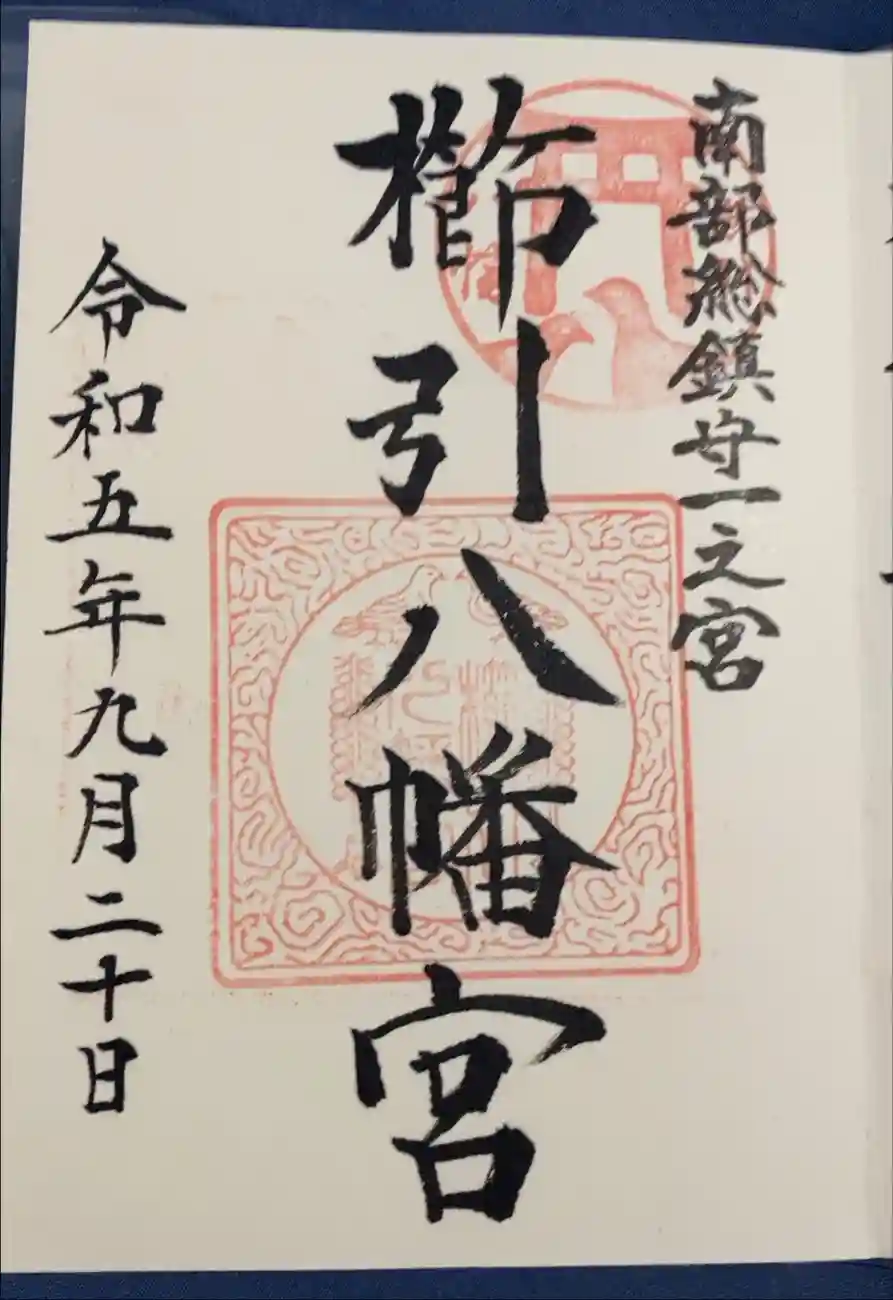 南部総鎮守一之宮
櫛引八幡宮
令和五年九月二十日